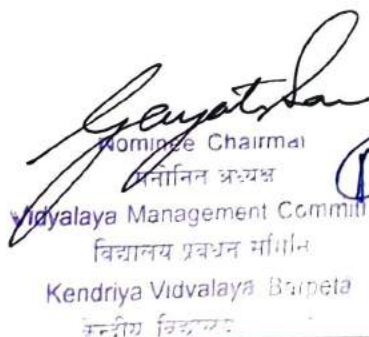 Nominee Chairma
मनोनित अध्यक्ष
Vidyalaya Management Committ
विद्यालय प्रबंधन समिति
Kendriya Vidyalaya Barpeta
केन्द्रीय विद्यालय